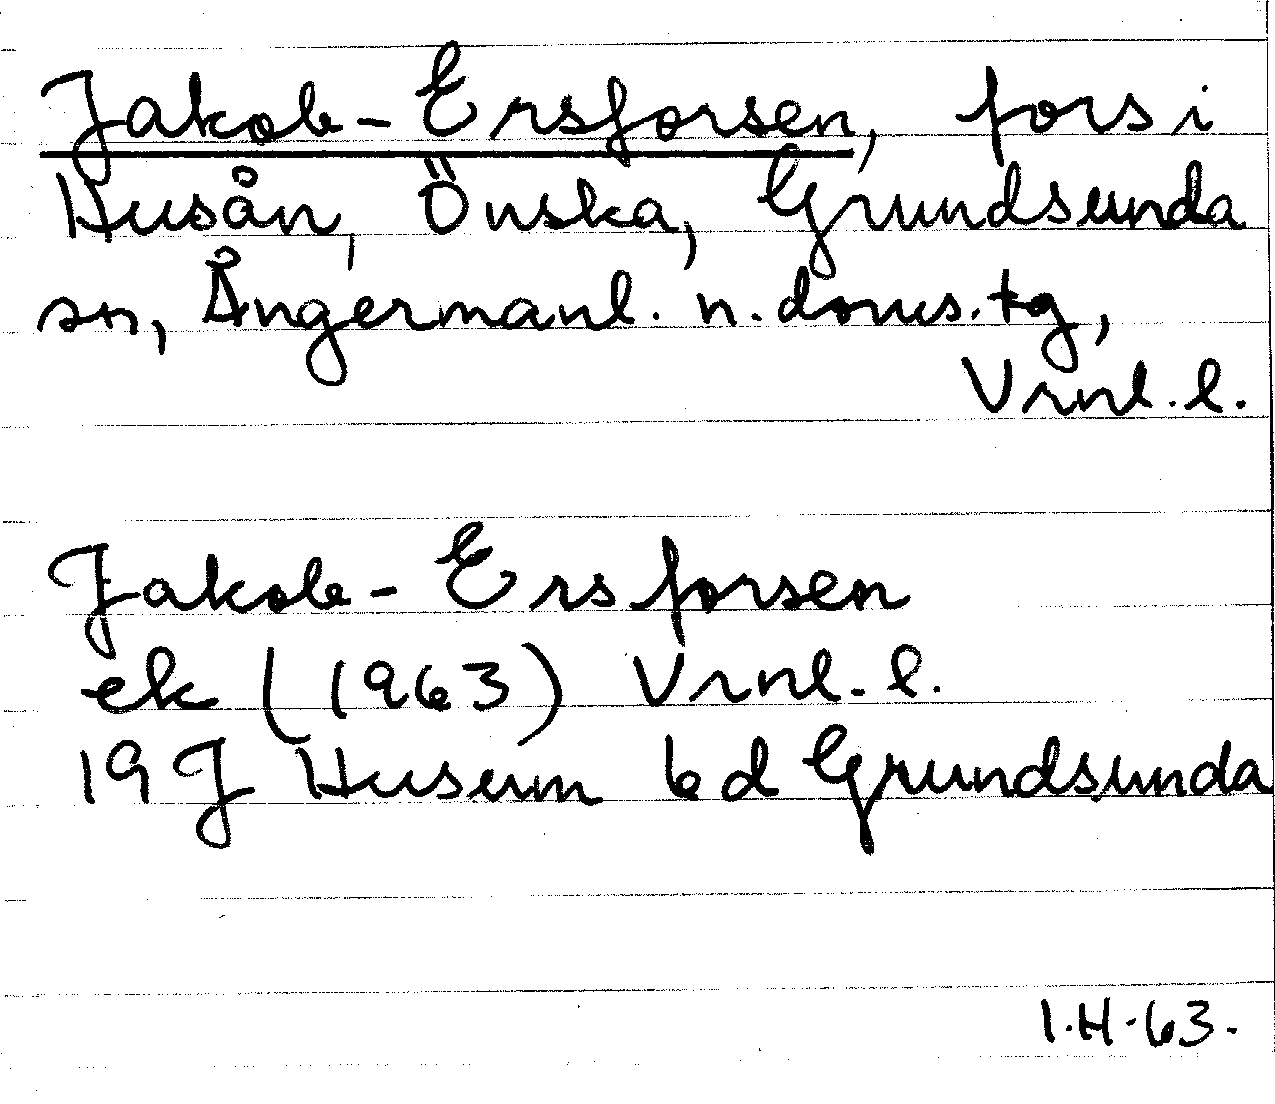 Jakob-Ersforsen, fors i
Husån, Önska, Grundsunda
sn, Ångermanl. n. doms. tg,
Vrnl. l.
Jakob-Ersforsen
ek (1963) Vrnl. l.
19 J Husum 6d Grundsunda
I.H.63.